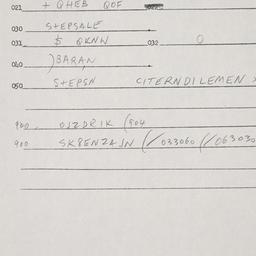 021 + QHEB QOF
030 S+EPSALE
031 $ QKNW 032 0
040 )BARAN
050 S+EPSN CITERNDILEMEN
900 OJZDRIK (904
900 SKRENZAJN (/033060 (/063030